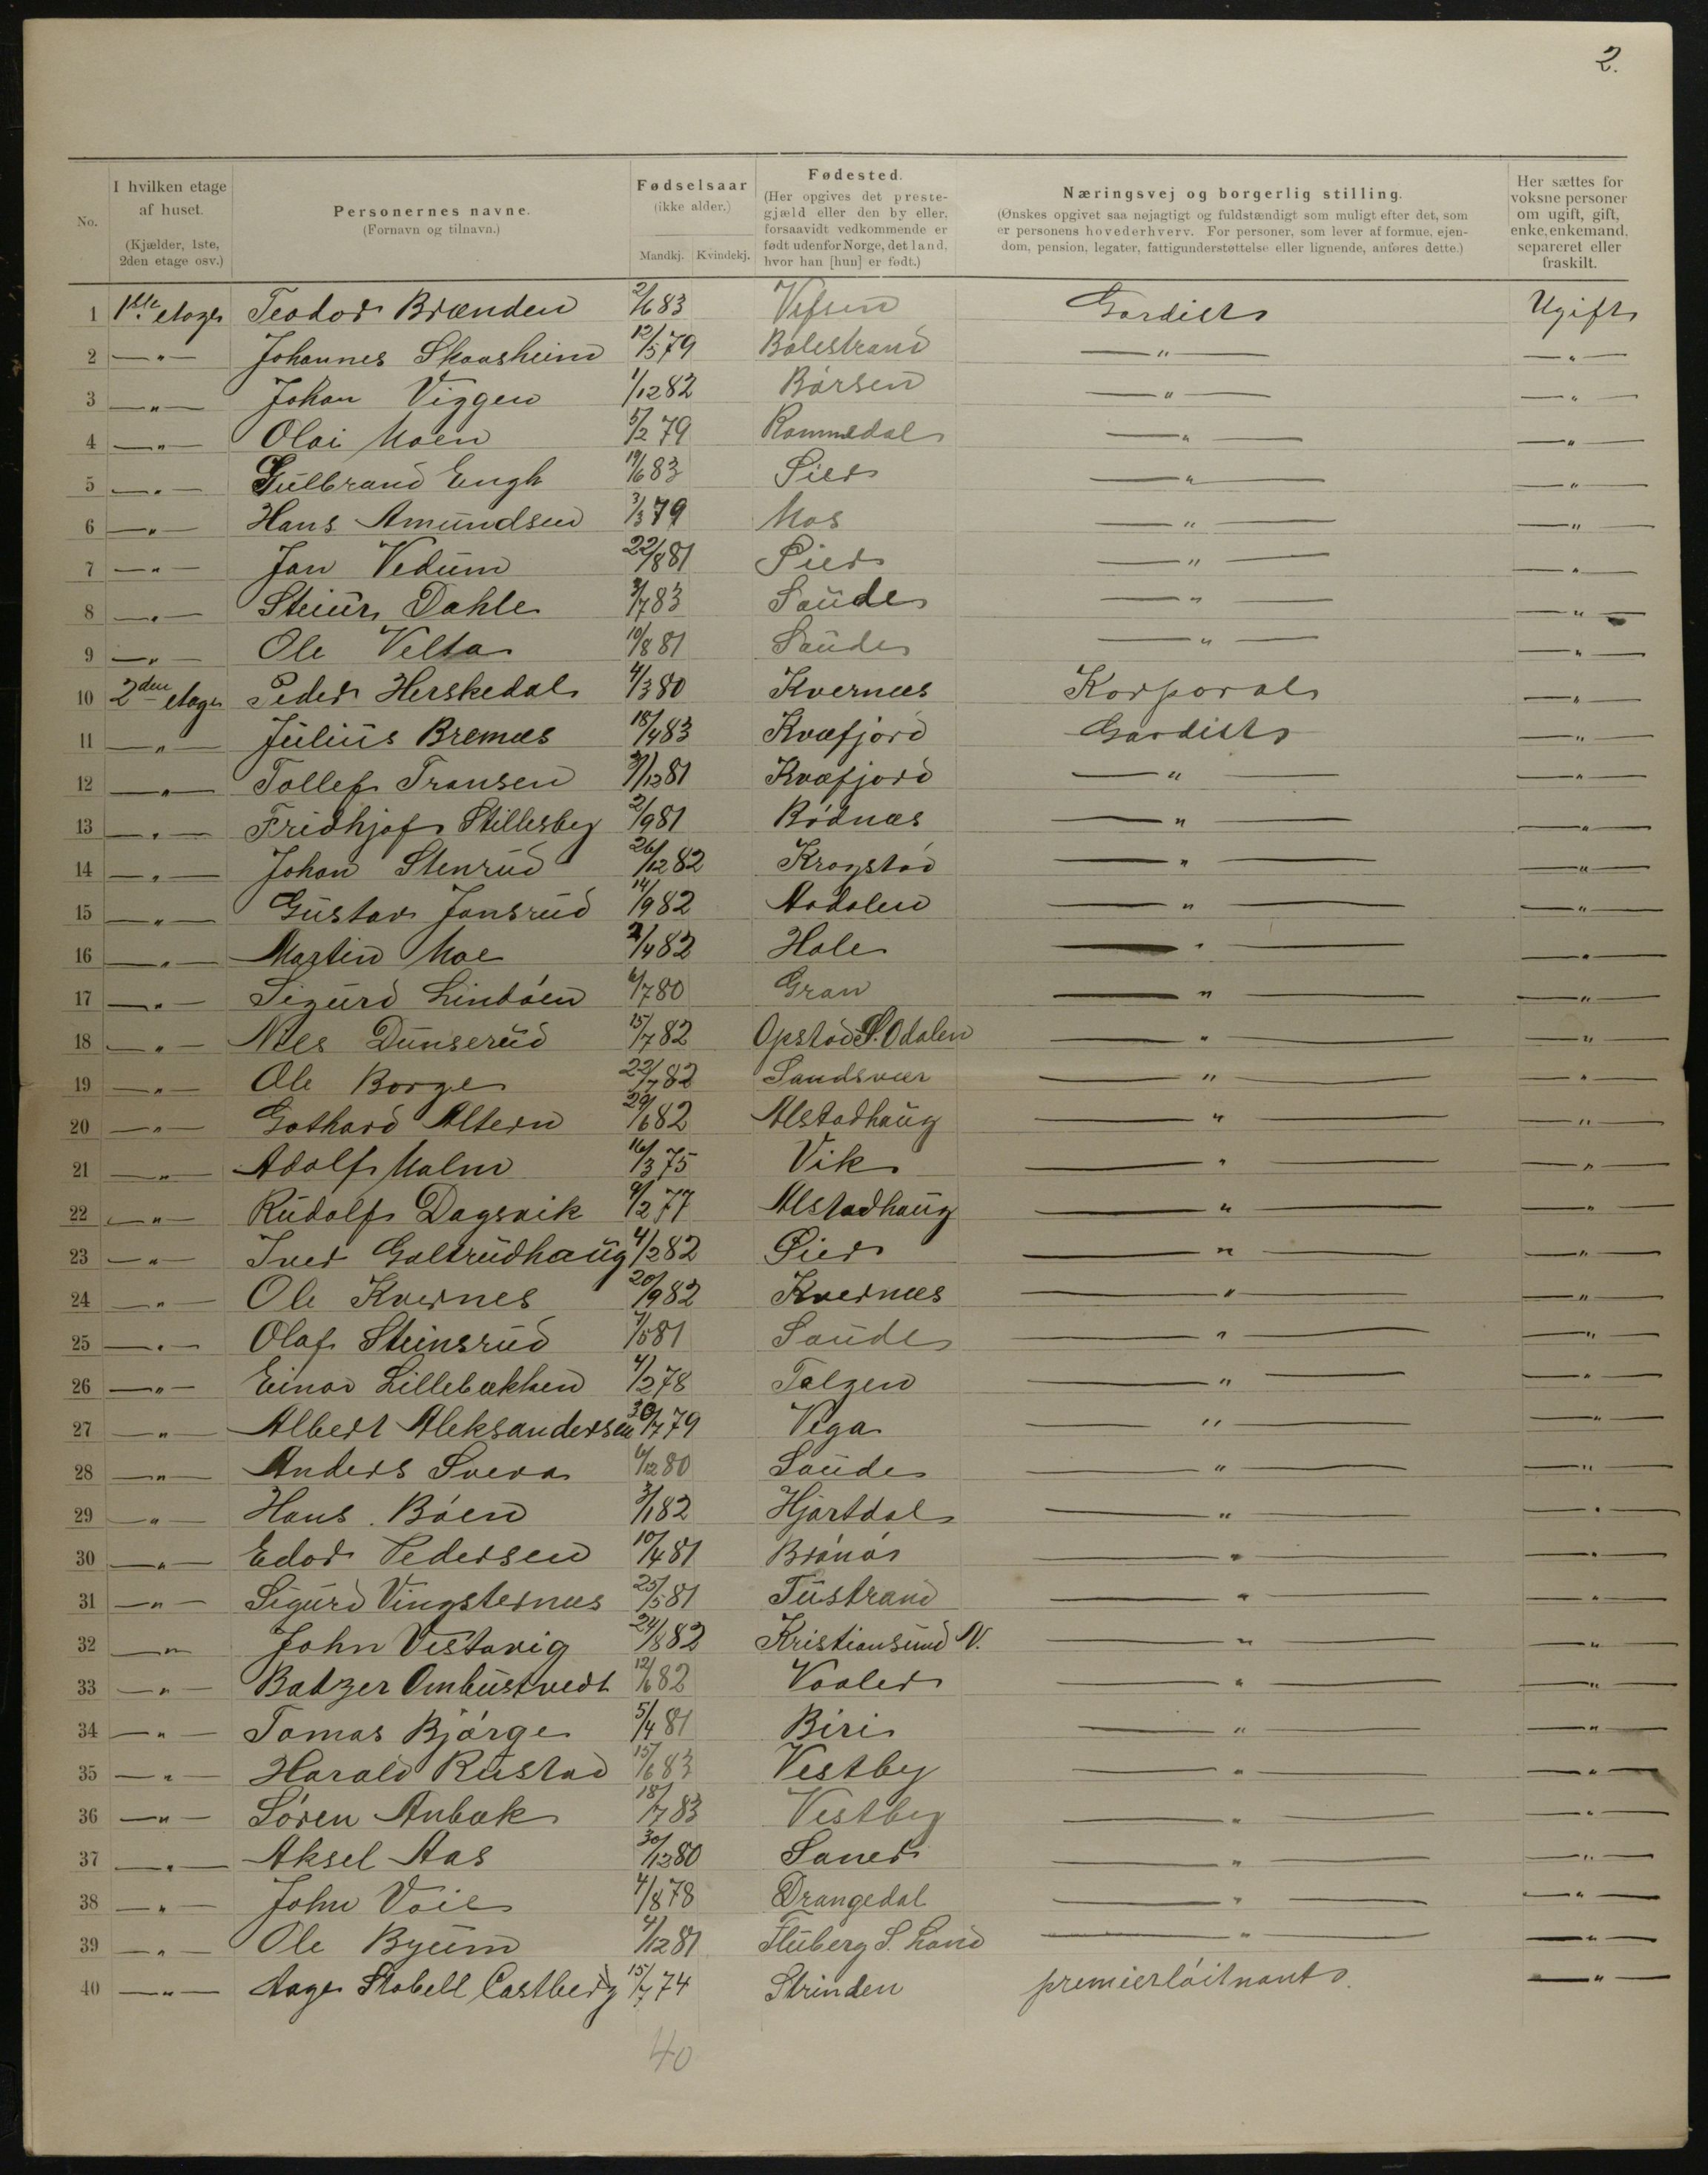 2.
No.
I hvilken etage af huset. (Kjælder, 1ste, 2den etage osv.)
Personernes navne. (Fornavn og tilnavn.)
Fødselsaar (ikke alder.) Mandkj. Kvindekj.
Fødested. (Her opgives det prestegjæld eller den by eller, forsaavidt vedkommende er født udenfor Norge, det land, hvor han [hun] er født.)
Næringsvej og borgerlig stilling. (Ønskes opgivet saa nøjagtigt og fuldstændigt som muligt efter det, som er personens hovederhverv. For personer, som lever af formue, ejendom, pension, legater, fattigunderstøttelse eller lignende, anføres dette.)
Her sættes for voksne personer om ugift, gift, enke, enkemand, separeret eller fraskilt.
1 1ste etage Teodor Brænden 2/6 83 Vefsen Gardist Ugift
2 —"— Johannes Skaasheim 12/5 79 Balestrand —"— —"—
3 —"— Johan Viggen 1/12 82 Børsen —"— —"—
4 —"— Olai Moen 5/2 79 Rommedal —"— —"—
5 —"— Gulbrand Engh 19/6 83 —"— —"—
6 —"— Hans Amundsen 3/3 79 Mos —"— —"—
7 —"— Jan Vedum 22/8 81 —"— —"—
8 —"— Steiur Dahle 3/7 83 Saude —"— —"—
9 —"— Ole Velta 10/8 81 Saude —"— —"—
10 2den etage Peder Herskedal 4/3 80 Kvernæs Korporal —"—
11 —"— Julius Bremæs 18/4 83 Kvæfjord Gardist —"—
12 —"— Tollef Transen 31/12 81 Kvæfjord —"— —"—
13 —"— Fridhjof Stillesby 2/9 81 Bødnæs —"— —"—
14 —"— Johan Stenrud 26/12 82 Krogstad —"— —"—
15 —"— Gustav Jansrud 14/9 82 Aadalen —"— —"—
16 —"— Martin Moe 2/4 82 Hole —"— —"—
17 —"— Sigurd Lindøen 6/7 80 Gran —"— —"—
18 —"— Nils Dunserud 15/7 82 Opstad S. Odalen —"— —"—
19 —"— Ole Borge 22/7 82 Sandsvær —"— —"—
20 —"— Gothard Altern 29/6 82 Alstadhaug —"— —"—
21 —"— Adolf Malm 16/3 75 Vik —"— —"—
22 —"— Rudolf Dagsvik 9/2 77 Alstadhaug —"— —"—
23 —"— Iver Galtrudhaug 4/2 82 Øier —"— —"—
24 —"— Ole Kvernes 20/9 82 Kvernæs —"— —"—
25 —"— Olaf Steinsrud 7/5 81 Saude —"— —"—
26 —"— Einar Lillebækken 4/2 78 Tolgen —"— —"—
27 —"— Albert Aleksandersen 30/7 79 Vega —"— —"—
28 —"— Anders Svera 6/12 80 Saude —"— —"—
29 —"— Hans Bøen 3/1 82 Hjartdal —"— —"—
30 —"— Edor Pedersen 10/4 81 Brønøs —"— —"—
31 —"— Sigurd Vingsternæs 25/5 81 Tustrand —"— —"—
32 —"— John Vestavig 24/8 82 Kristiansund N. —"— —"—
33 —"— Batzer Ombustvedt 12/6 82 Vaaler —"— —"—
34 —"— Tomas Bjørge 5/4 81 Biri —"— —"—
35 —"— Harald Rustad 15/6 83 Vestby —"— —"—
36 —"— Søren Aubæk 18/7 83 Vestby —"— —"—
37 —"— Aksel Aas 30/12 80 Saner —"— —"—
38 —"— John Voie 4/8 78 Drangedal —"— —"—
39 —"— Ole Byum 4/12 81 Fluberg S. Land —"— —"—
40 —"— Aage Stabell Castberg 15/7 74 Strinden premierløitnant. —"—
40